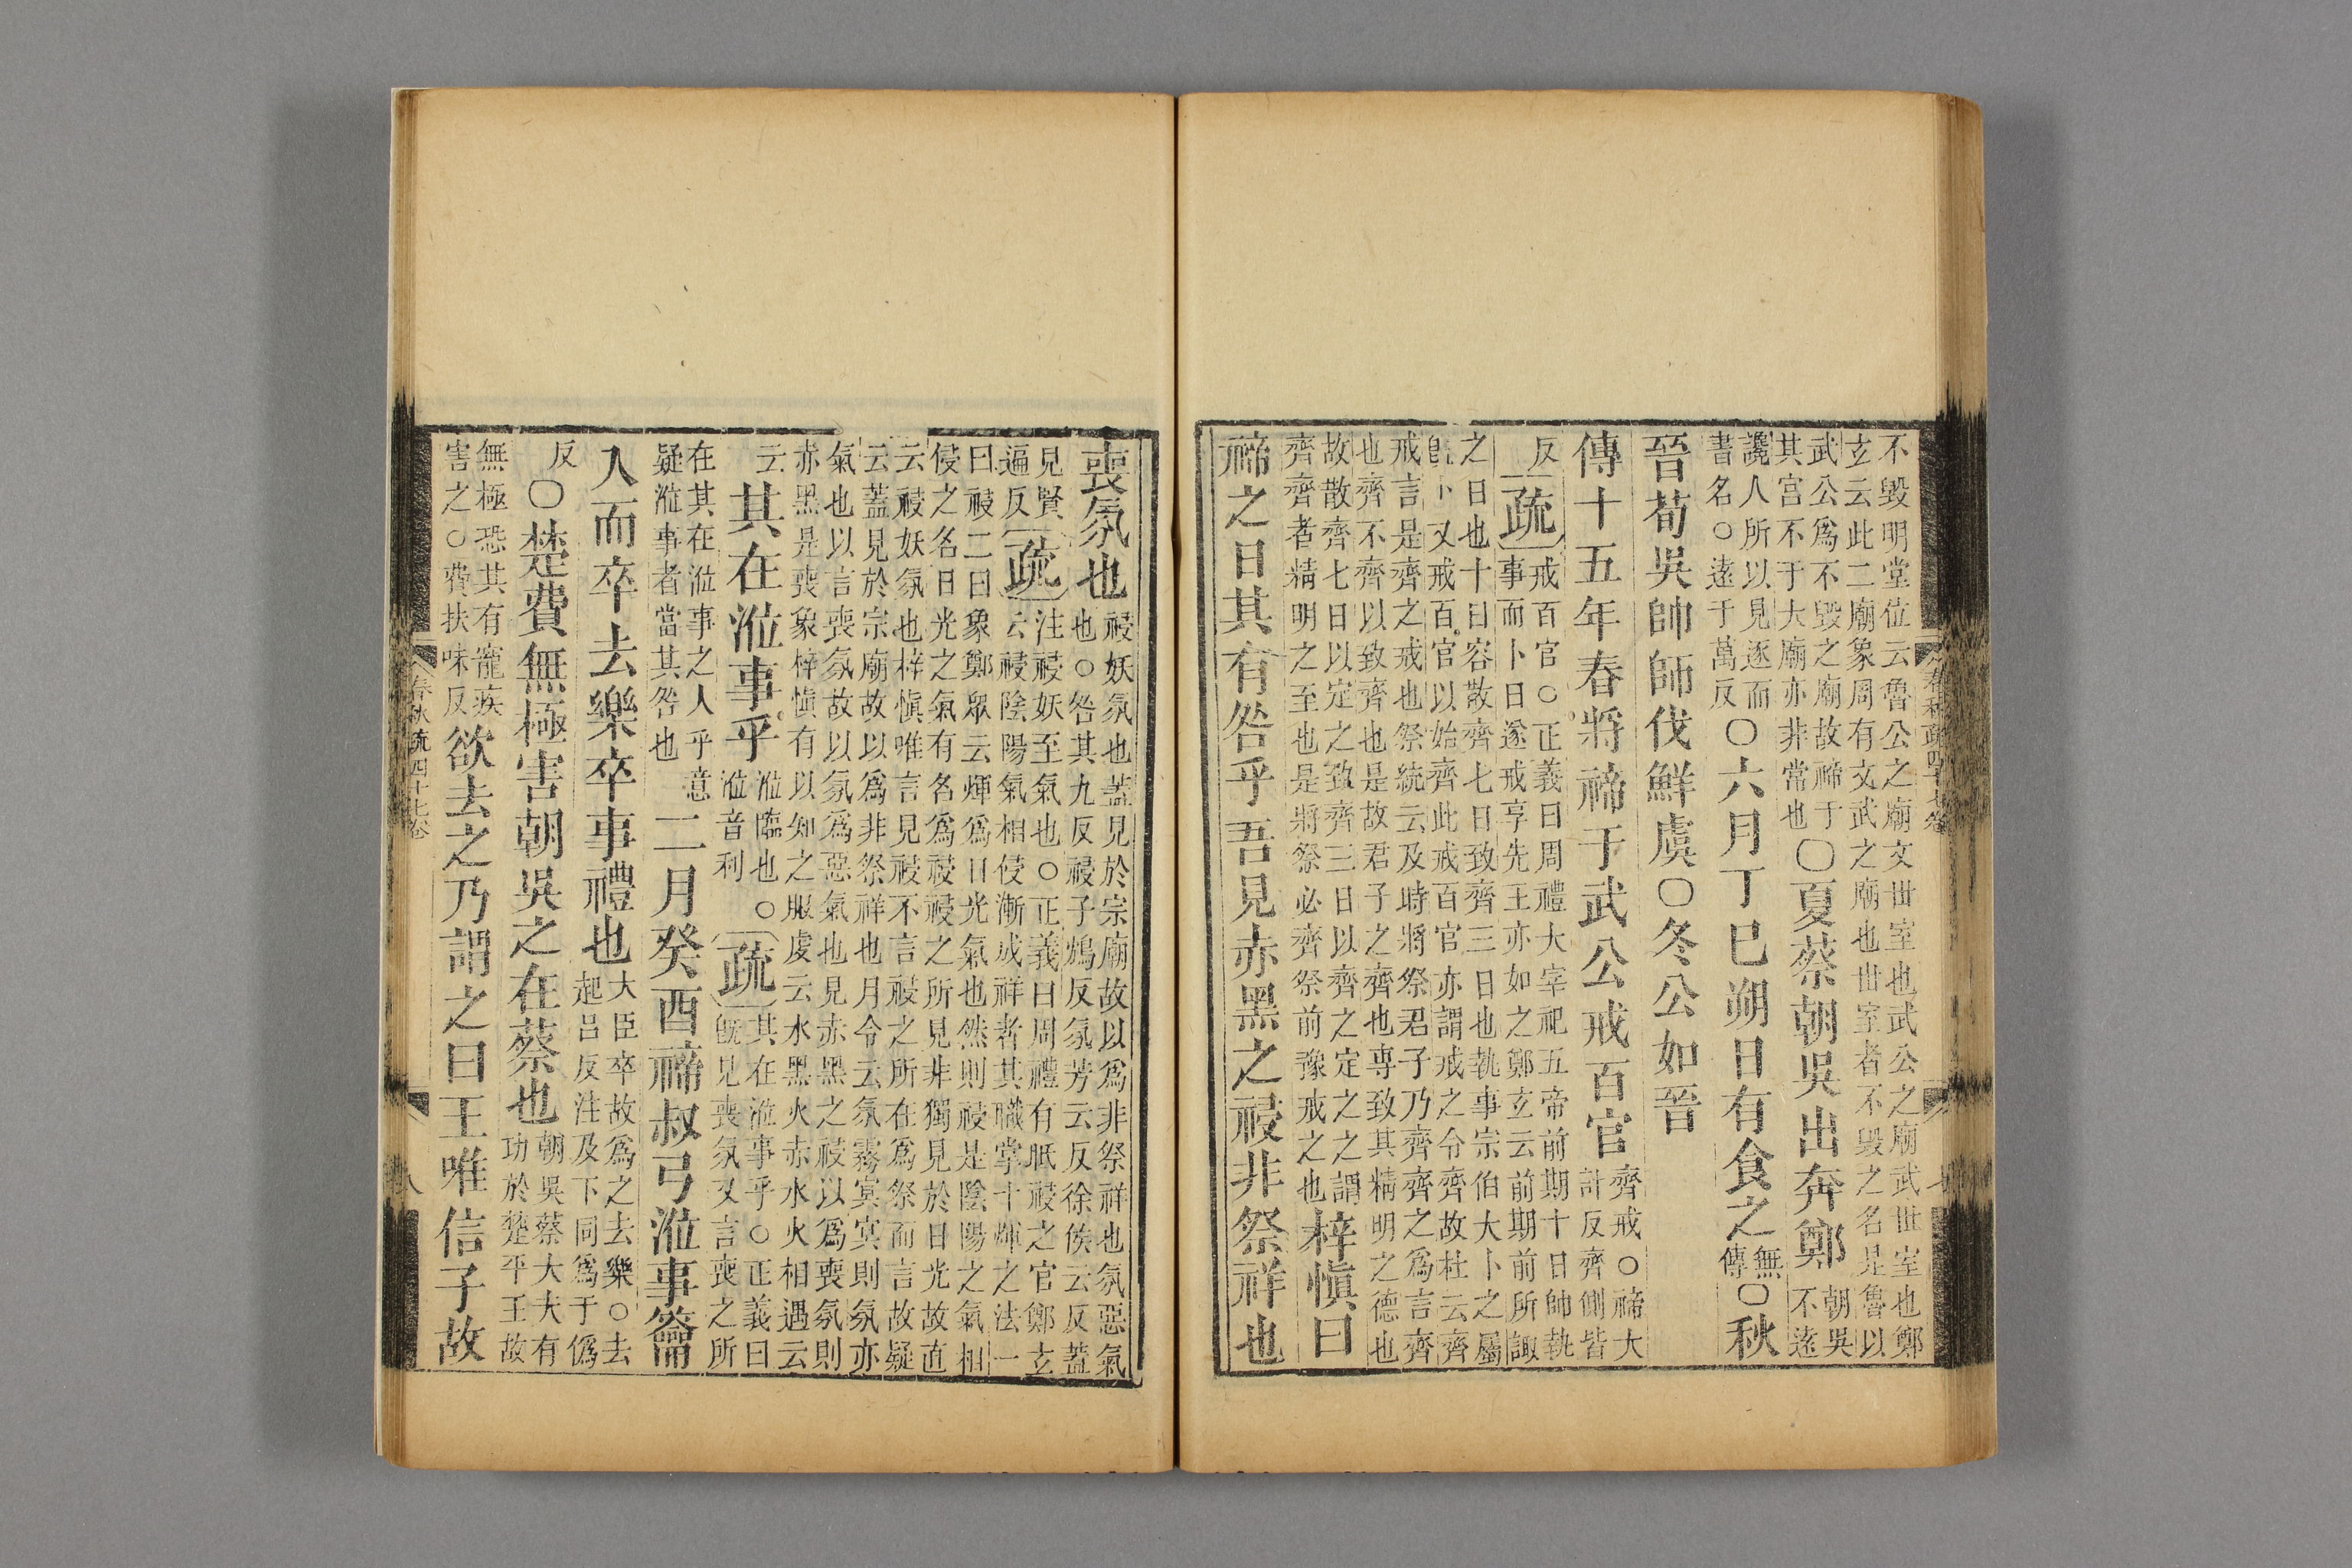 不毀明堂位云魯公之廟文世室也武公之廟武世室也鄭
玄云此二廟象周有文武之廟也世室者不毀之名是魯以
武公爲不毀之廟故禘于
其宮不于大廟亦非常也〇夏蔡朝吳出奔鄭朝吳不遠
讒人所以見逐而
書名〇遠于萬反〇六月丁巳朔日有食之無傳〇秋
晉荀吳帥師伐鮮虞〇冬公如晉
傳十五年春將禘于武公戒百官齊戒〇禘大計反齊側皆
反疏戒百官〇正義曰周禮大宰祀五帝前期十日帥執
事而卜日遂戒享先王亦如之鄭玄云前期前所諏
之日也十日容散齊七日致齊三日也執事宗伯大卜之屬
既卜又戒百官以始齊此戒百官亦謂戒之令齊故杜云齊
戒言是齊之戒也祭統云及時將祭君子乃齊齊之爲言齊
也齊不齊以致齊也是故君子之齊也專致其精明之德也
故散齊七日以定之致齊三日以齊之定之之謂
齊齊者精明之至也是將祭必齊祭前豫戒之也梓愼曰
禘之日其有咎乎吾見赤黑之祲非祭祥也
喪氛也祲妖氛也蓋見於宗廟故以爲非祭祥也氛惡氣
也〇咎其九反祲子鴆反氛芳云反徐侯云反蓋
見賢
遍反疏注祲妖至氣也〇正義曰周禮有眂祲之官鄭玄
云祲陰陽氣相侵漸成祥者其職掌十煇之法一
曰祲二曰象鄭眾云煇爲日光氣也然則祲是陰陽之氣相
侵之名日光之氣有名爲祲祲之所見非獨見於日光故直
云祲妖氛也梓愼唯言見祲不言祲之所在爲祭而言故疑
云蓋見於宗廟故以爲非祭祥也月令云氛霧冥冥則氛亦
氣也以言喪氛故以氛爲惡氣也見赤黑之祲以爲喪氛則
赤黑是喪象梓愼有以知之服虔云水黑火赤水火相遇云
云其在涖事乎涖臨也〇涖音利疏其在涖事乎〇正義曰既見喪氛又言喪之所
在其在涖事之人乎意
疑涖事者當其咎也二月癸酉禘叔弓涖事籥
入而卒去樂卒事禮也大臣卒故爲之去樂〇去起呂反注及下同爲于僞
反〇楚費無極害朝吳之在蔡也朝吳蔡大夫有功於楚平王故
無極恐其有寵疾
害之〇費扶味反欲去之乃謂之曰王唯信子故
春秋疏四十七卷
八